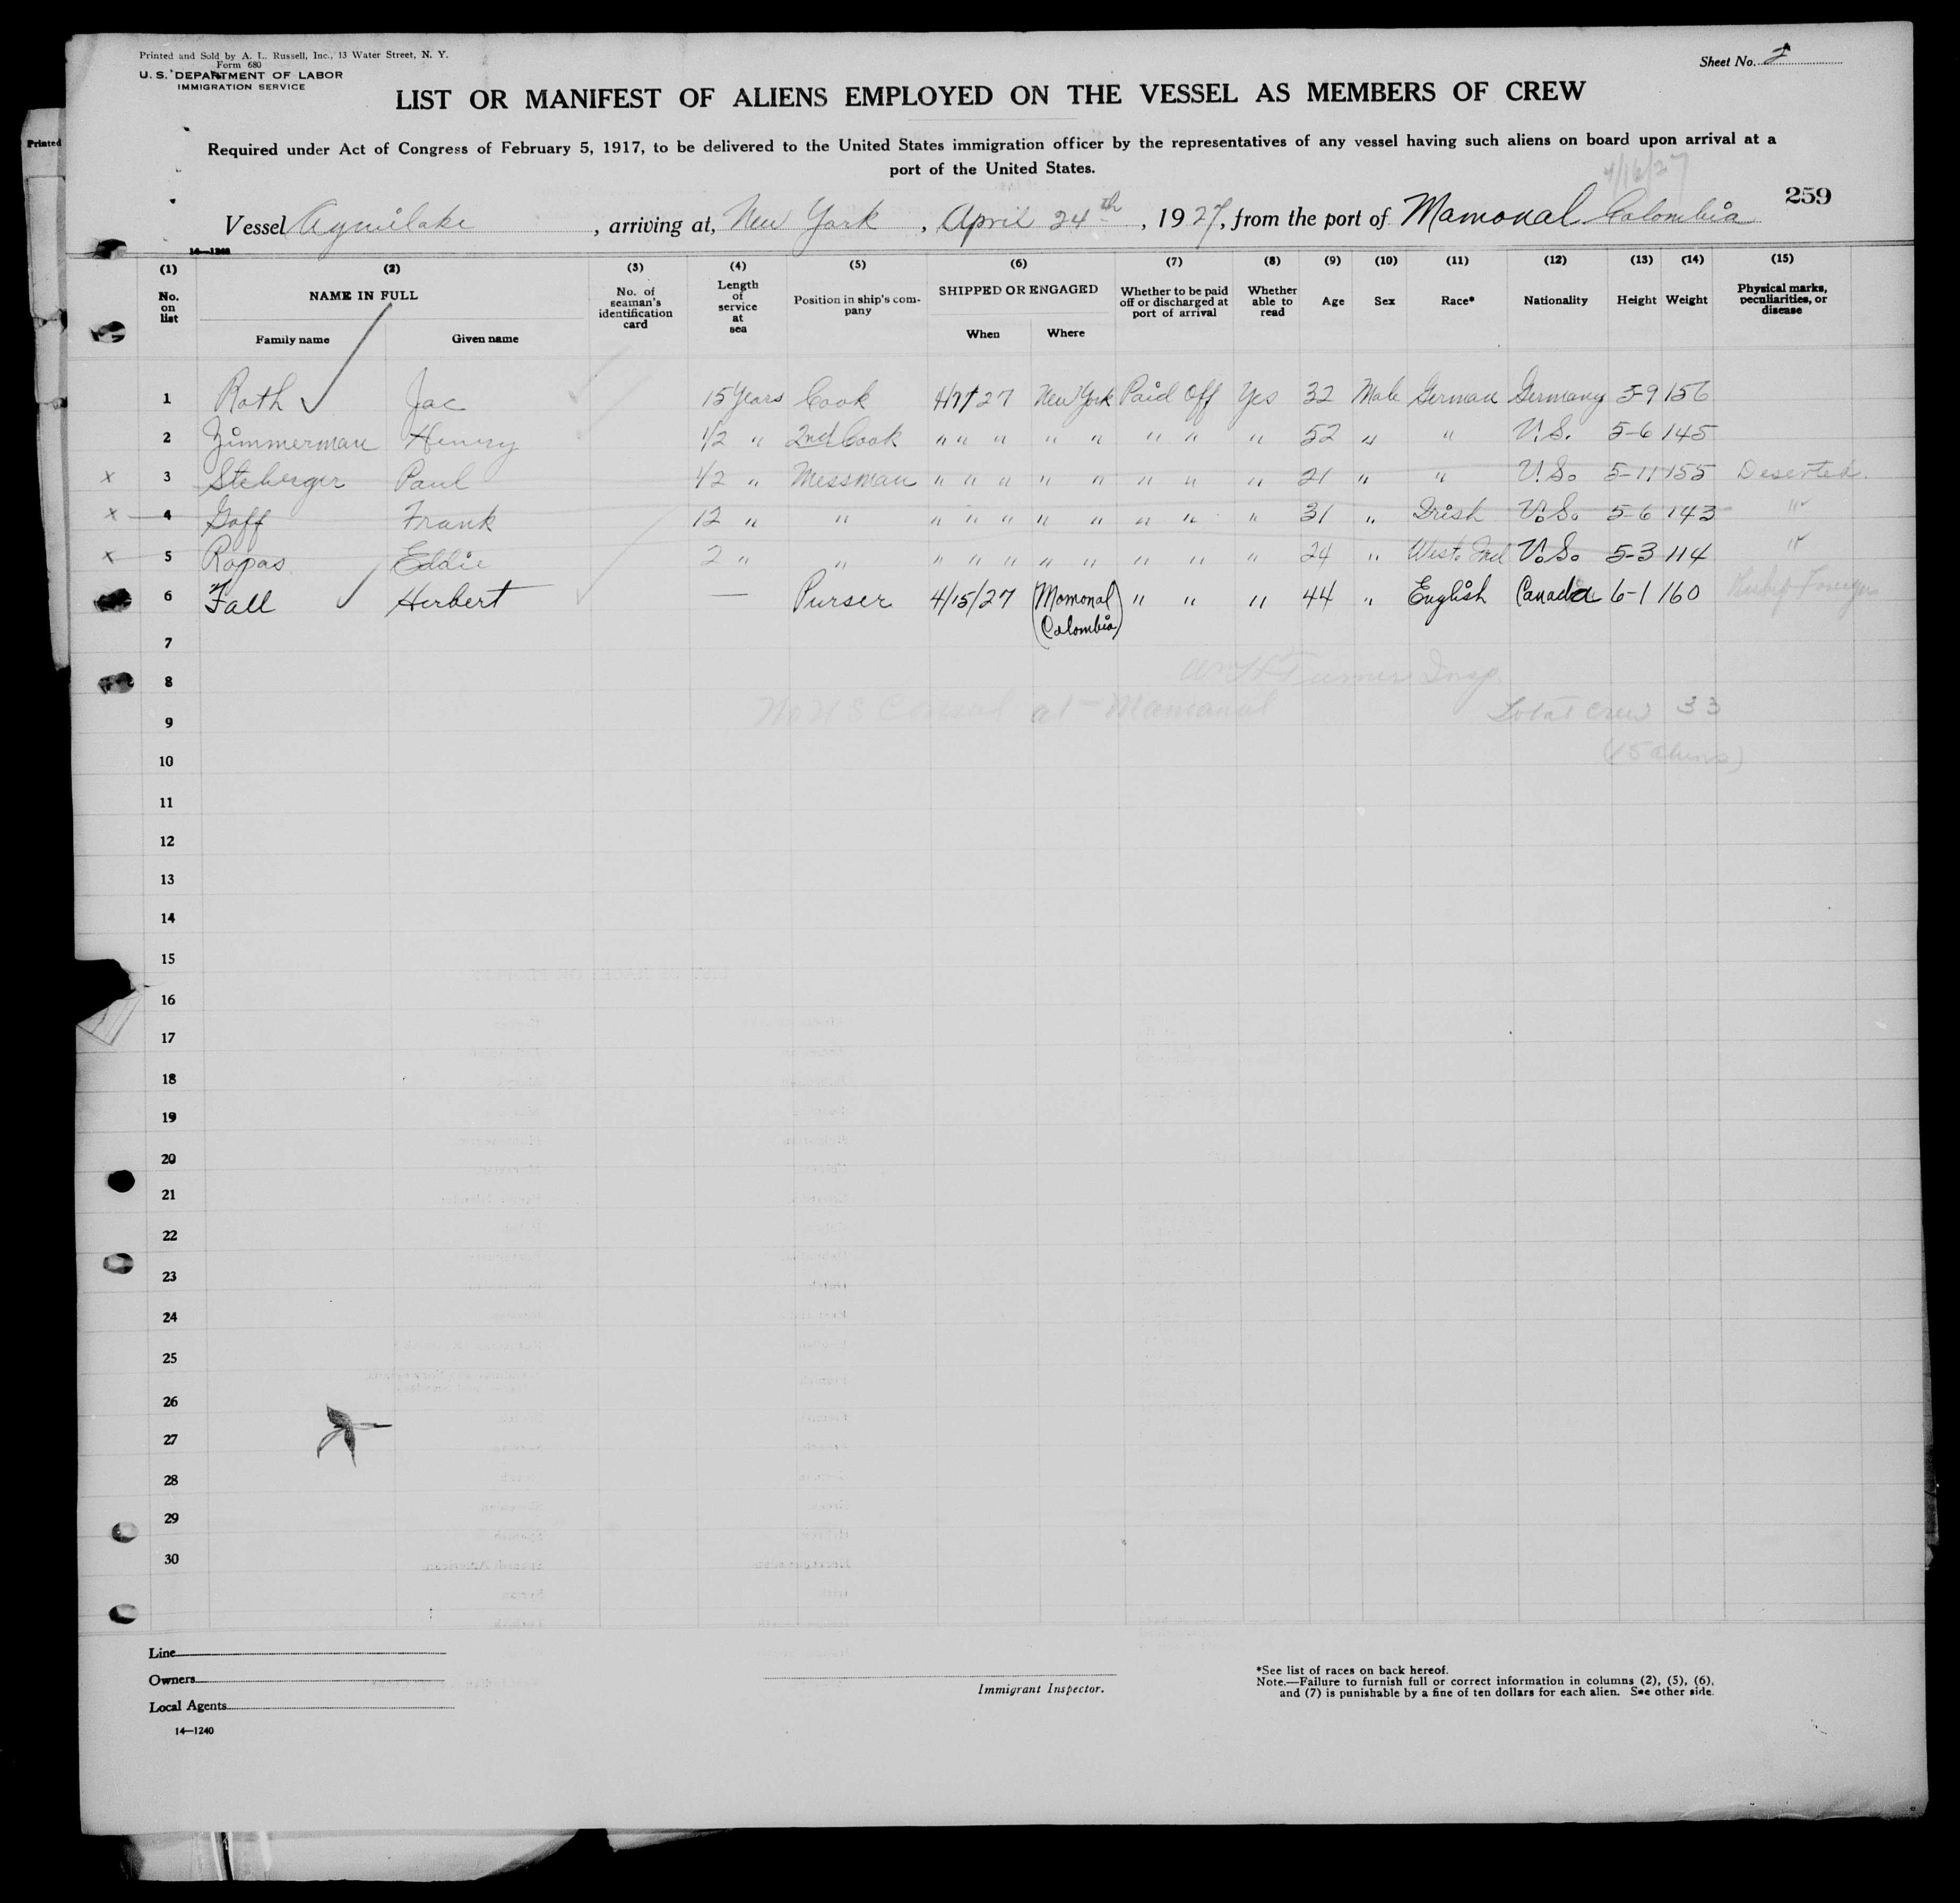 Printed and Sold by A. L. Russell, Inc., 13 Water Street, N. Y.
Form 680
U. S. DEPARTMENT OF LABOR
IMMIGRATION SERVICE
Sheet No. 2
LIST OR MANIFEST OF ALIENS EMPLOYED ON THE VESSEL AS MEMBERS OF CREW
Required under Act of Congress of February 5, 1917, to be delivered to the United States immigration officer by the representatives of any vessel having such aliens on board upon arrival at a
port of the United States.
4/16/27
259
Vessel Agwilake, arriving at, New York, April 24th, 1927, from the port of Mamonal Colombia
14—1240
(1) (2) (3) (4) (5) (6) (7) (8) (9) (10) (11) (12) (13) (14) (15)
No. on list NAME IN FULL Family name Given name No. of seaman's identification card Length of service at sea Position in ship's company SHIPPED OR ENGAGED When Where Whether to be paid off or discharged at port of arrival Whether able to read Age Sex Race* Nationality Height Weight Physical marks, peculiarities, or disease
1 Roth Jac 15 Years Cook 4/7/27 New York Paid Off Yes 32 Male German Germany 5-9 156
2 Zimmerman Henry 1/2 " 2nd Cook " " " " " " " " 52 " " U.S. 5-6 145
x 3 Steberger Paul 1/2 " Messman " " " " " " " " 21 " " U.S. 5-11 155 Deserted.
x 4 Goff Frank 12 " " " " " " " " " " 31 " Irish U.S. 5-6 143 "
x 5 Ropas Eddie 2 " " " " " " " " " " 24 " West. Ind U.S. 5-3 114 "
6 Fall Herbert — Purser 4/15/27 (Momonal Colombia) " " " 44 " English Canada 6-1 160
7
8 Wm H Turner Insp.
9 No U S Consul at Mamonal Total Crew 33
10 (15 aliens)
11
12
13
14
15
16
17
18
19
20
21
22
23
24
25
26
27
28
29
30
Line
Owners
Local Agents
14—1240
Immigrant Inspector.
*See list of races on back hereof.
Note.—Failure to furnish full or correct information in columns (2), (5), (6),
and (7) is punishable by a fine of ten dollars for each alien. See other side.
Printed